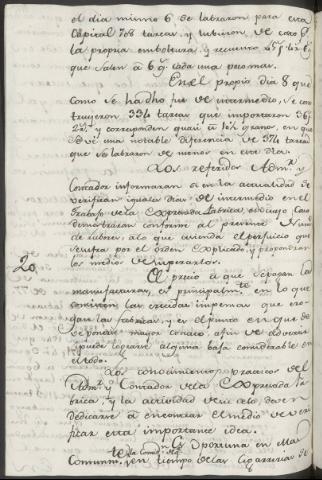 el dia mismo 6 se labraron para esta
Capital 708 tareas, y tubieron de costo pr.
la propia emboltura, y recuento
que salen á 6 gs. cada una
En el propio dia 8 que
como se ha dho fue de intermedio, se cons
truyeron 334 tareas que importaron
y corresponden quasi á granos, en que
se vé una notable diferencia de 374 tareas
que se labraron de menos en este dia.
Los referidos Admr. y
Contador informaran si en la actualidad se
verifican iguales dias de intermedio en el
trabajo de la Expresada Fabrica,
demostraran conforme al presente
de labores, á lo que asciende el perjuicio que
resulta por el orden explicado, y propondran
los medios de
20
El precio á que se pagan las
manufacturas, es principalmte. en lo que
consisten las crecidas impensas que ero-
gan las fabricas, y es el punto en que de
ve ponerse mayor conato, afin de
si puede lograrse alguna baja considerable en
el todo.
Los conocimientos practicos del
Admr. y Contador de la Expresada Fa
brica, y la actividad de su celo deven
dedicarse á encontrar el medio de veri
ficar esta importante idea.
Es oportuna en
Comunmte. en tiempo de las Cigarrerias de